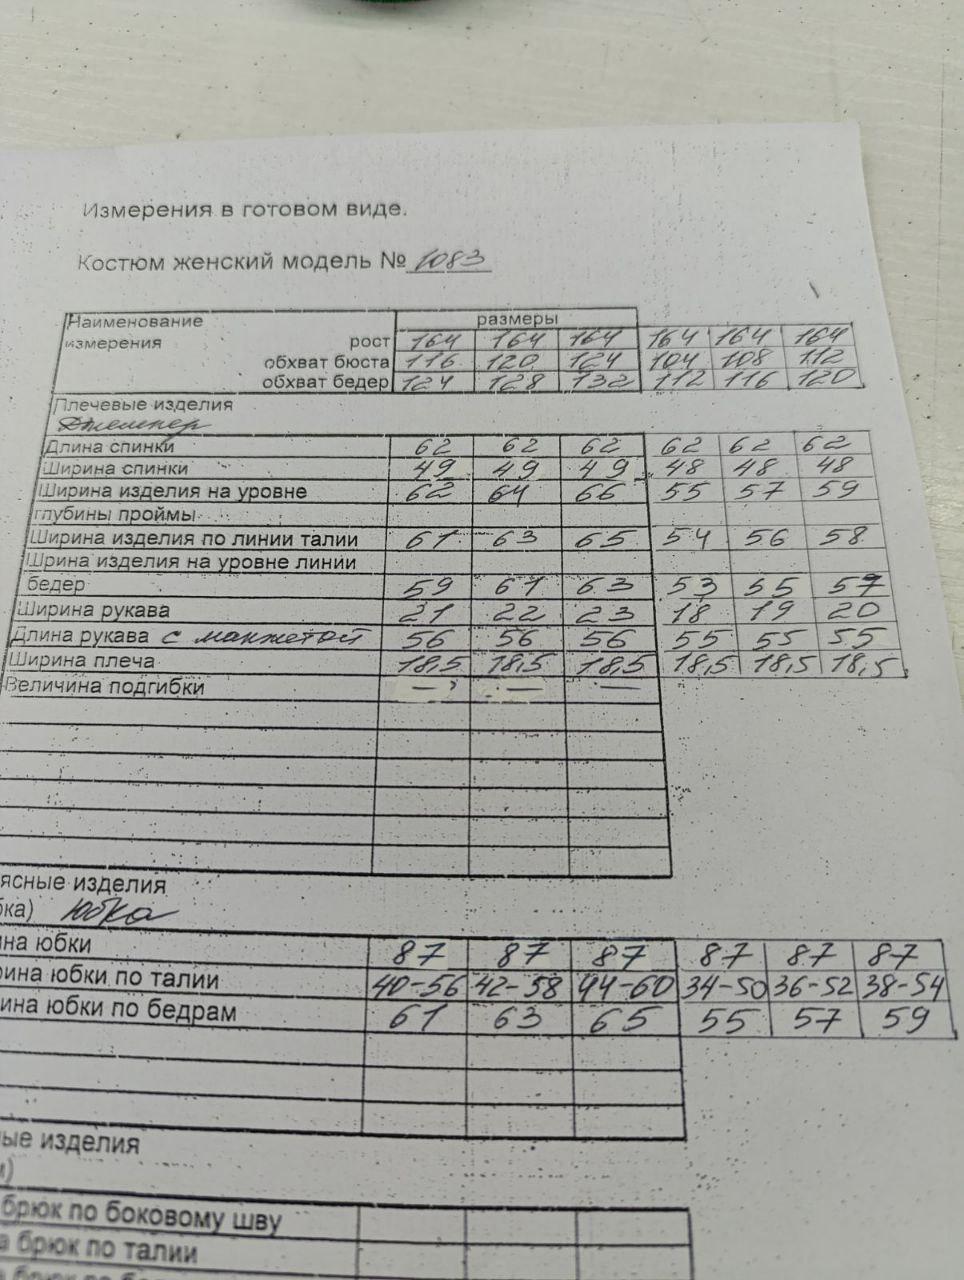 Измерения в готовом виде.
Костюм женский модель № 1083
Наименование размеры
измерения рост 164 164 164 164 164 164
обхват бюста 116 120 124 104 108 112
обхват бедер 124 128 132 112 116 120
Плечевые изделия
Джемпер
Длина спинки 62 62 62 62 62 62
Ширина спинки 49 49 49 48 48 48
Ширина изделия на уровне 62 64 66 55 57 59
глубины проймы
Ширина изделия по линии талии 61 63 65 54 56 58
Шрина изделия на уровне линии
бедер 59 61 63 53 55 57
Ширина рукава 21 22 23 18 19 20
Длина рукава с манжетой 56 56 56 55 55 55
Ширина плеча 18,5 18,5 18,5 18,5 18,5 18,5
Величина подгибки — — —
ясные изделия
бка) Юбка
на юбки 87 87 87 87 87 87
рина юбки по талии 40-56 42-58 44-60 34-50 36-52 38-54
ина юбки по бедрам 61 63 65 55 57 59
ые изделия
брюк по боковому шву
а брюк по талии